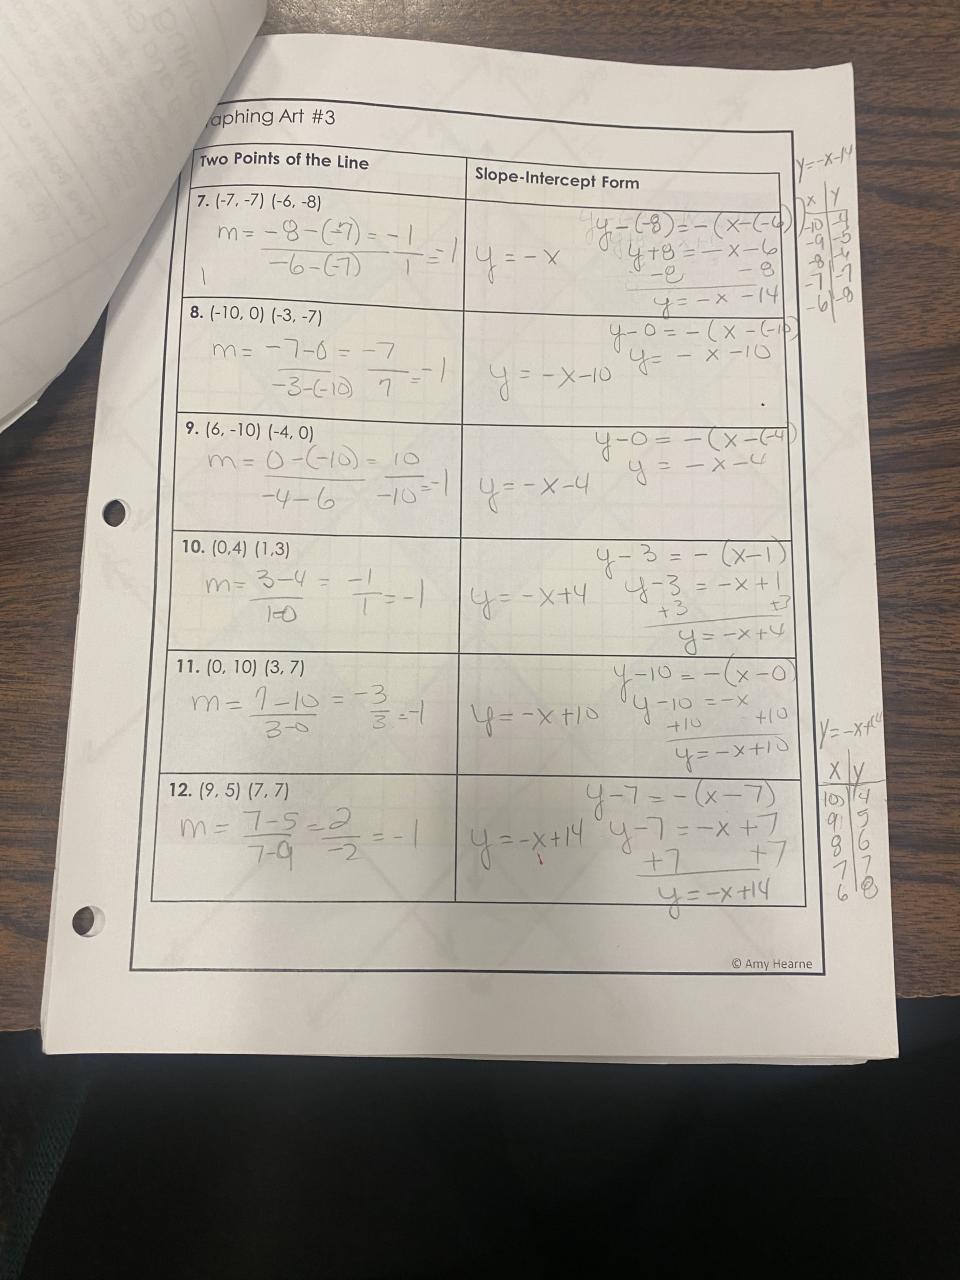 aphing Art #3
Two Points of the Line
Slope-Intercept Form
7. (-7, -7) (-6, -8)
m = -8-(-7) = -1 = -1
-6-(-7) 1
1
y = -x
y-(-8) = -(x-(-6)
y+8 = -x-6
-8 -8
y = -x -14
8. (-10, 0) (-3, -7)
m = -7-0 = -7 = -1
-3-(-10) 7
y = -x-10
y-0 = -(x-(-10
y = -x-10
9. (6, -10) (-4, 0)
m = 0-(-10) = 10 = -1
-4-6 -10
y = -x-4
y-0 = -(x-(-4)
y = -x-4
10. (0,4) (1,3)
m = 3-4 = -1 = -1
1-0 1
y = -x+4
y-3 = -(x-1)
y-3 = -x+1
+3 +3
y = -x+4
11. (0, 10) (3, 7)
m = 7-10 = -3 = -1
3-0 3
y = -x+10
y-10 = -(x-0)
y-10 = -x
+10 +10
y = -x+10
12. (9, 5) (7, 7)
m = 7-5 = 2 = -1
7-9 -2
y = -x+14
y-7 = -(x-7)
y-7 = -x+7
+7 +7
y = -x+14
© Amy Hearne
y=-x-14
x y
-10 -4
-9 -5
-8 -6
-7 -7
-6 -8
y=-x+14
x y
10 4
9 5
8 6
7 7
6 8